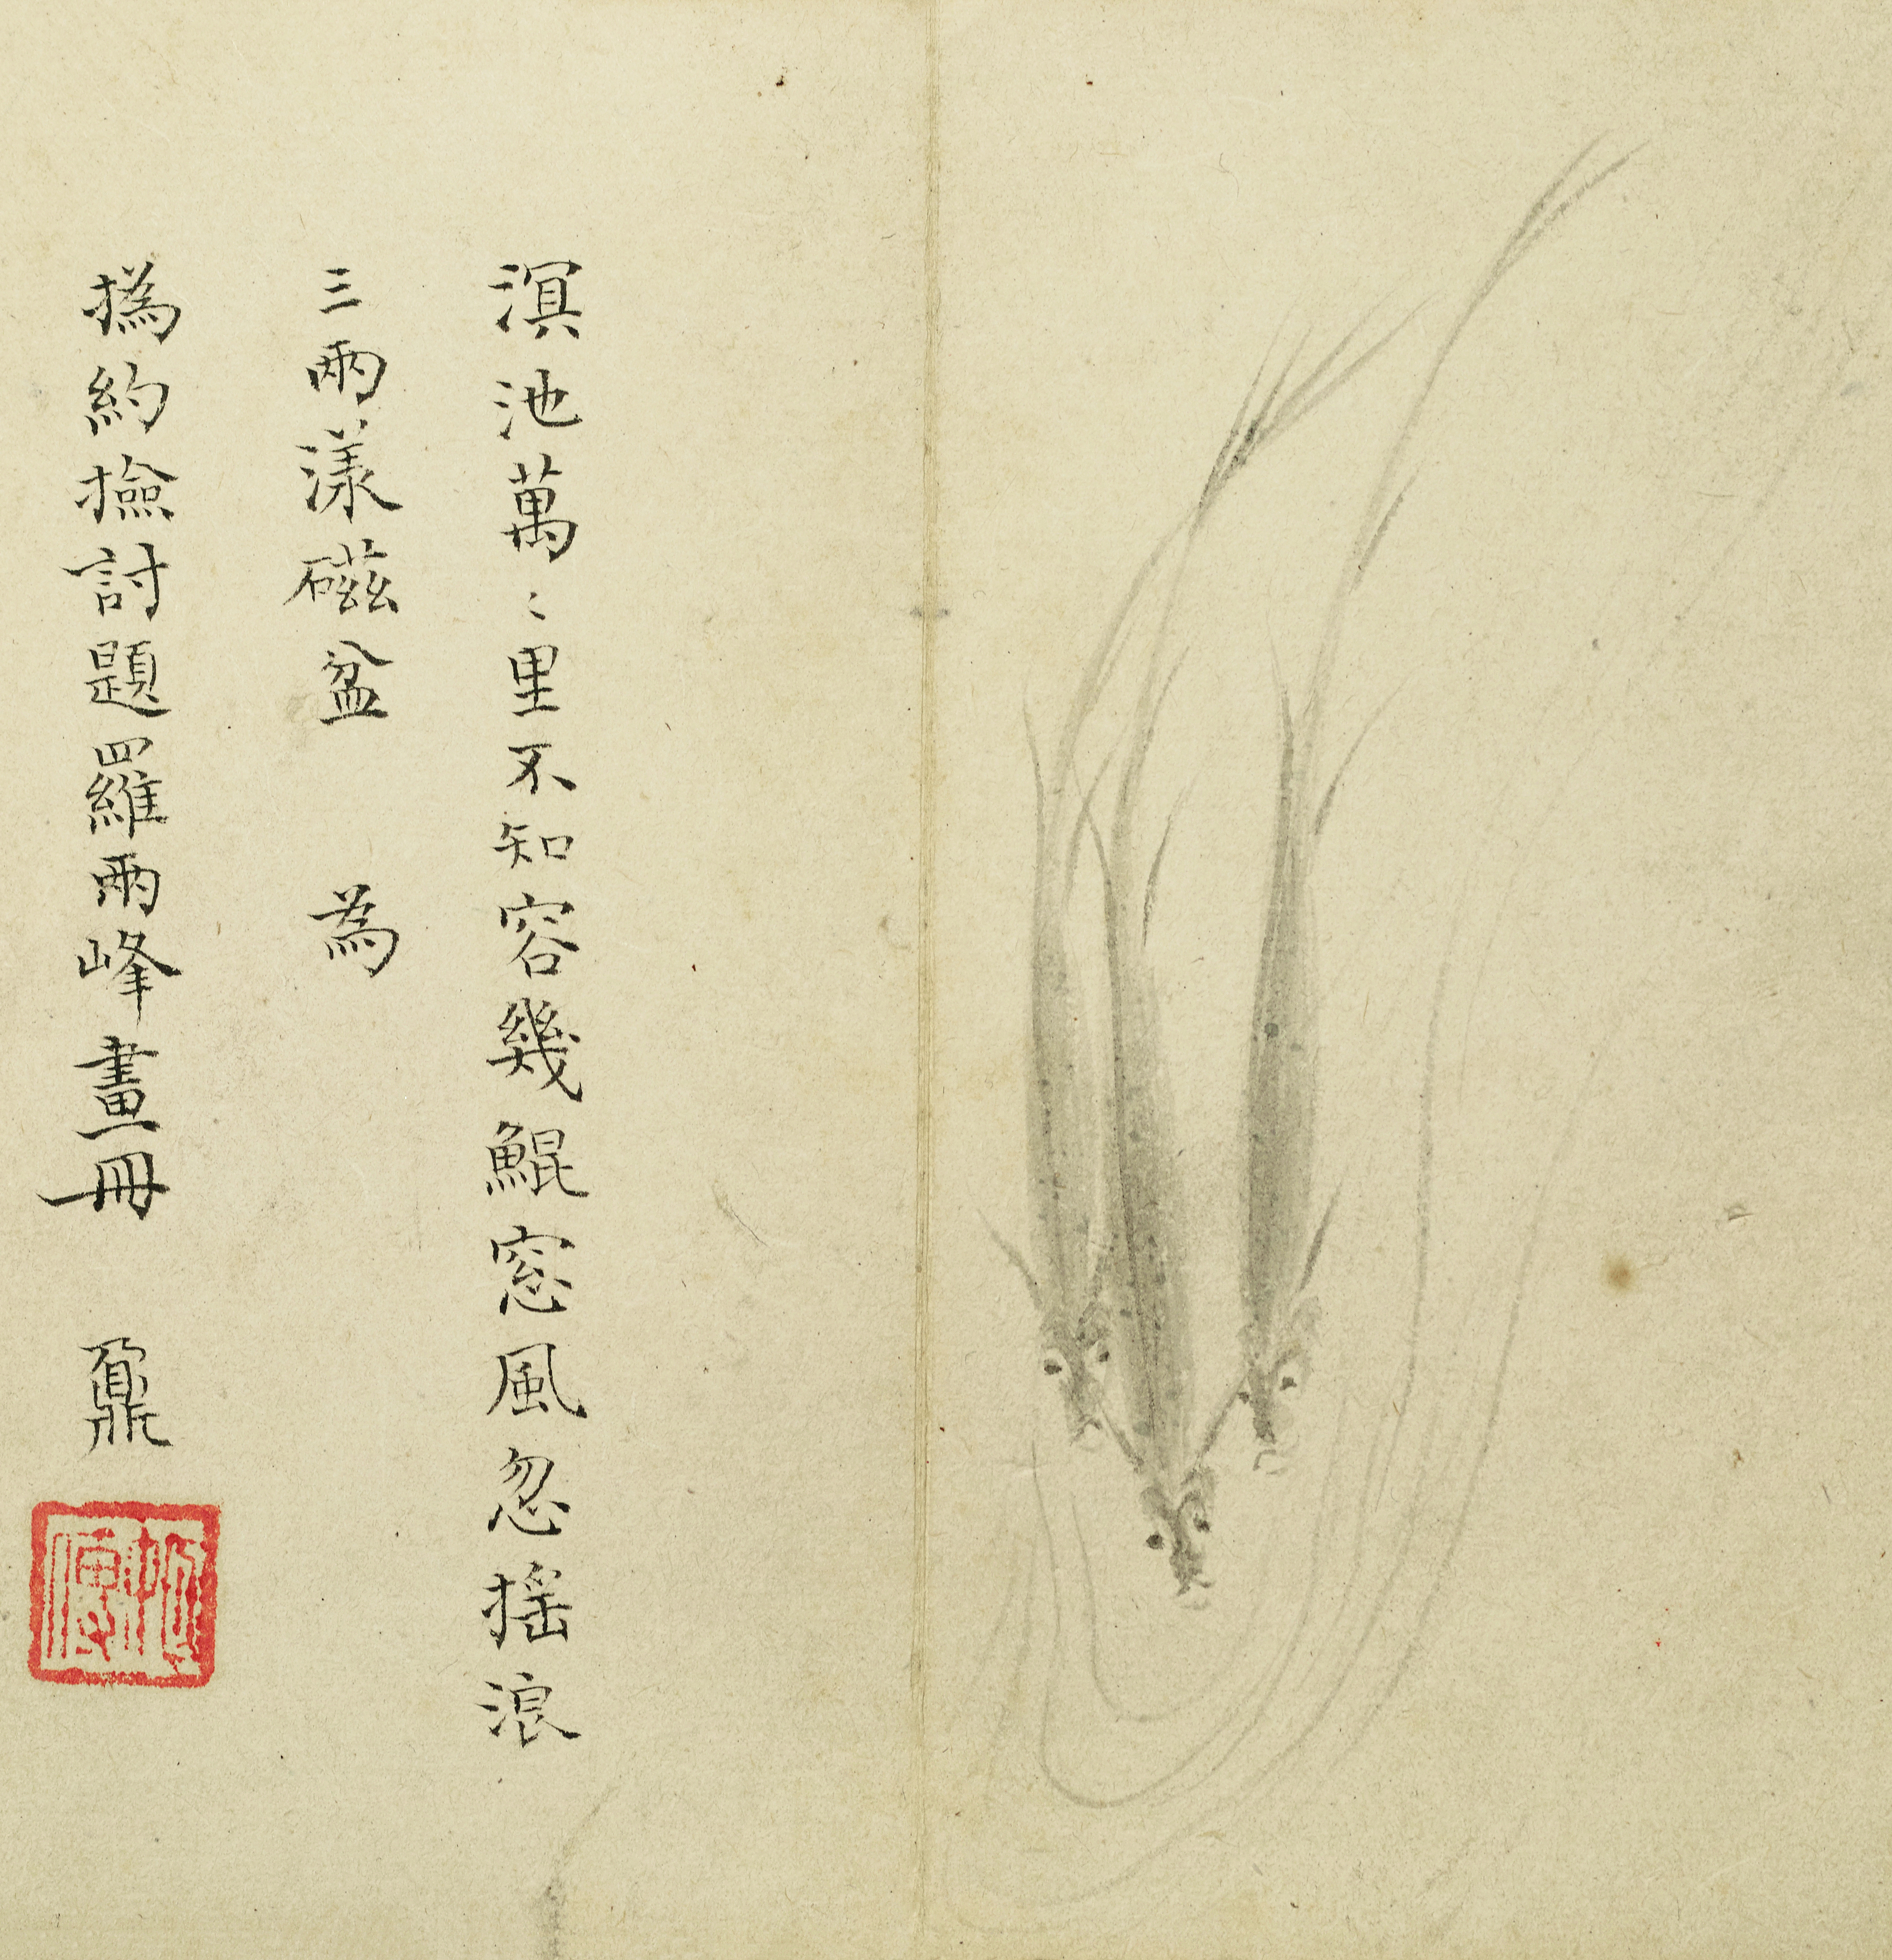 溟池萬〻里不知容幾鯤窓風忽搖浪
三兩漾磁盆 為
撝約撿討題羅兩峰畫冊 鼐
姬傳